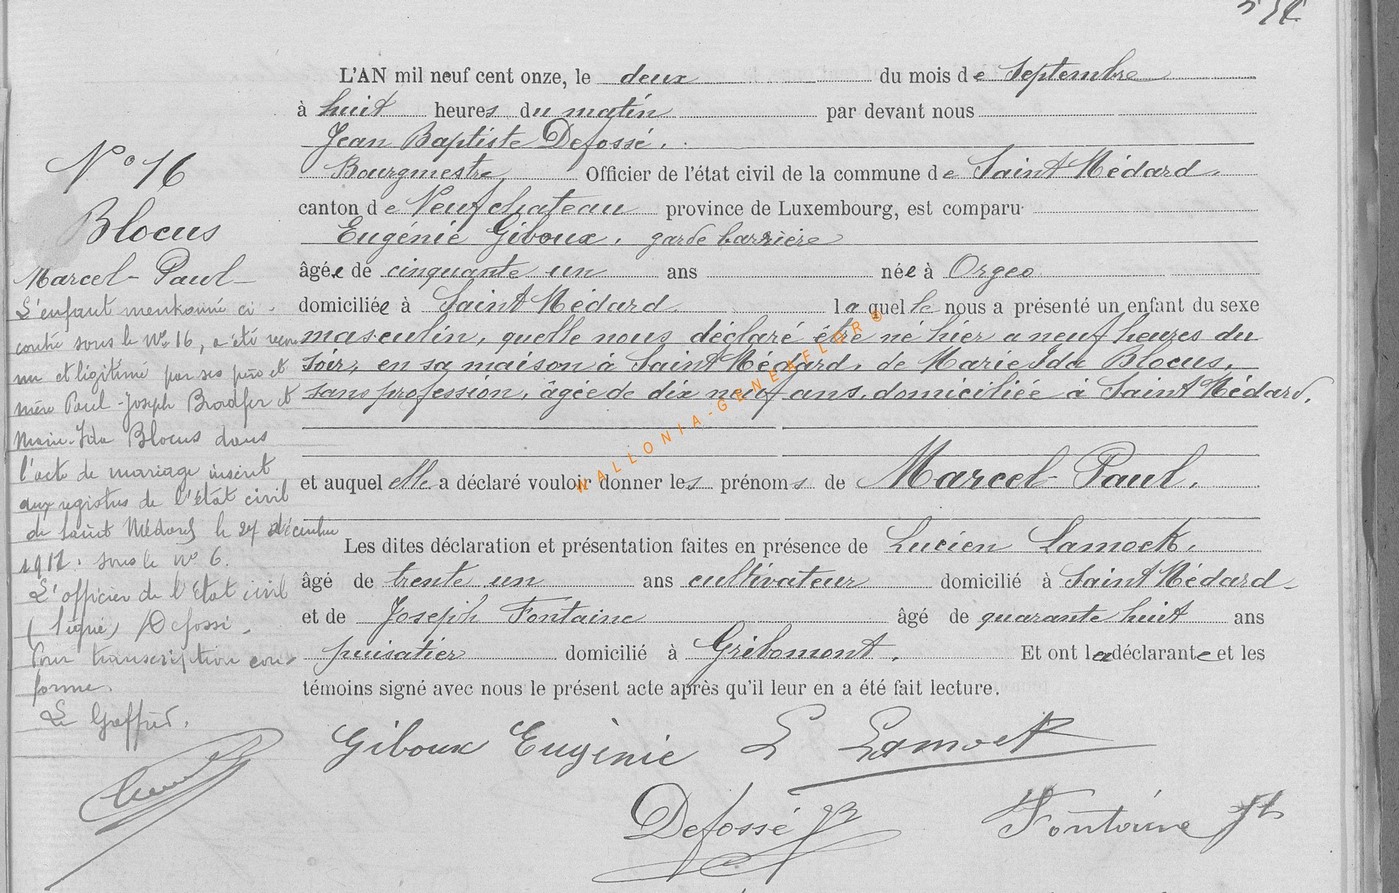 N° 16
Blocus
Marcel-Paul
L'enfant mentionné ci-
contre sous le N° 16, a été recon
nu et légitimé par ses père et
mère Paul-Joseph Bradfer et
Marie-Ida Blocus dans
l'acte de mariage inscrit
aux registres de l'état civil
de Saint Médard le 27 décembre
sous le N° 6.
L'officier de l'Etat civil
(signé) Defossé.
Pour transcription con-
forme.
Le Greffier.
L'AN mil neuf cent onze, le deux du mois de Septembre
à huit heures du matin par devant nous
Jean Baptiste Defossé.
Bourgmestre, Officier de l'état civil de la commune de Saint Médard.
canton de Neufchateau province de Luxembourg, est comparu
Eugénie Giboux, garde barrière
âgée de cinquante un ans née à Orgeo
domiciliée à Saint Médard laquelle nous a présenté un enfant du sexe
masculin, quelle nous déclaré être né hier a neuf heures du
soir, en sa maison à Saint Médard, de Marie Ida Blocus,
sans profession, âgée de dix neuf ans, domiciliée à Saint Médard.
et auquel elle a déclaré vouloir donner les prénoms de Marcel-Paul.
Les dites déclaration et présentation faites en présence de Lucien Lamock.
âgé de trente un ans cultivateur domicilié à Saint Médard-
et de Joseph Fontaine âgé de quarante huit ans
puisatier domicilié à Gribomont. Et ont la déclarante et les
témoins signé avec nous le présent acte après qu'il leur en a été fait lecture.
Giboux Eugénie L Lamock
Defossé JB Fontaine Jh
WALLONIA-GENEAFLOR®